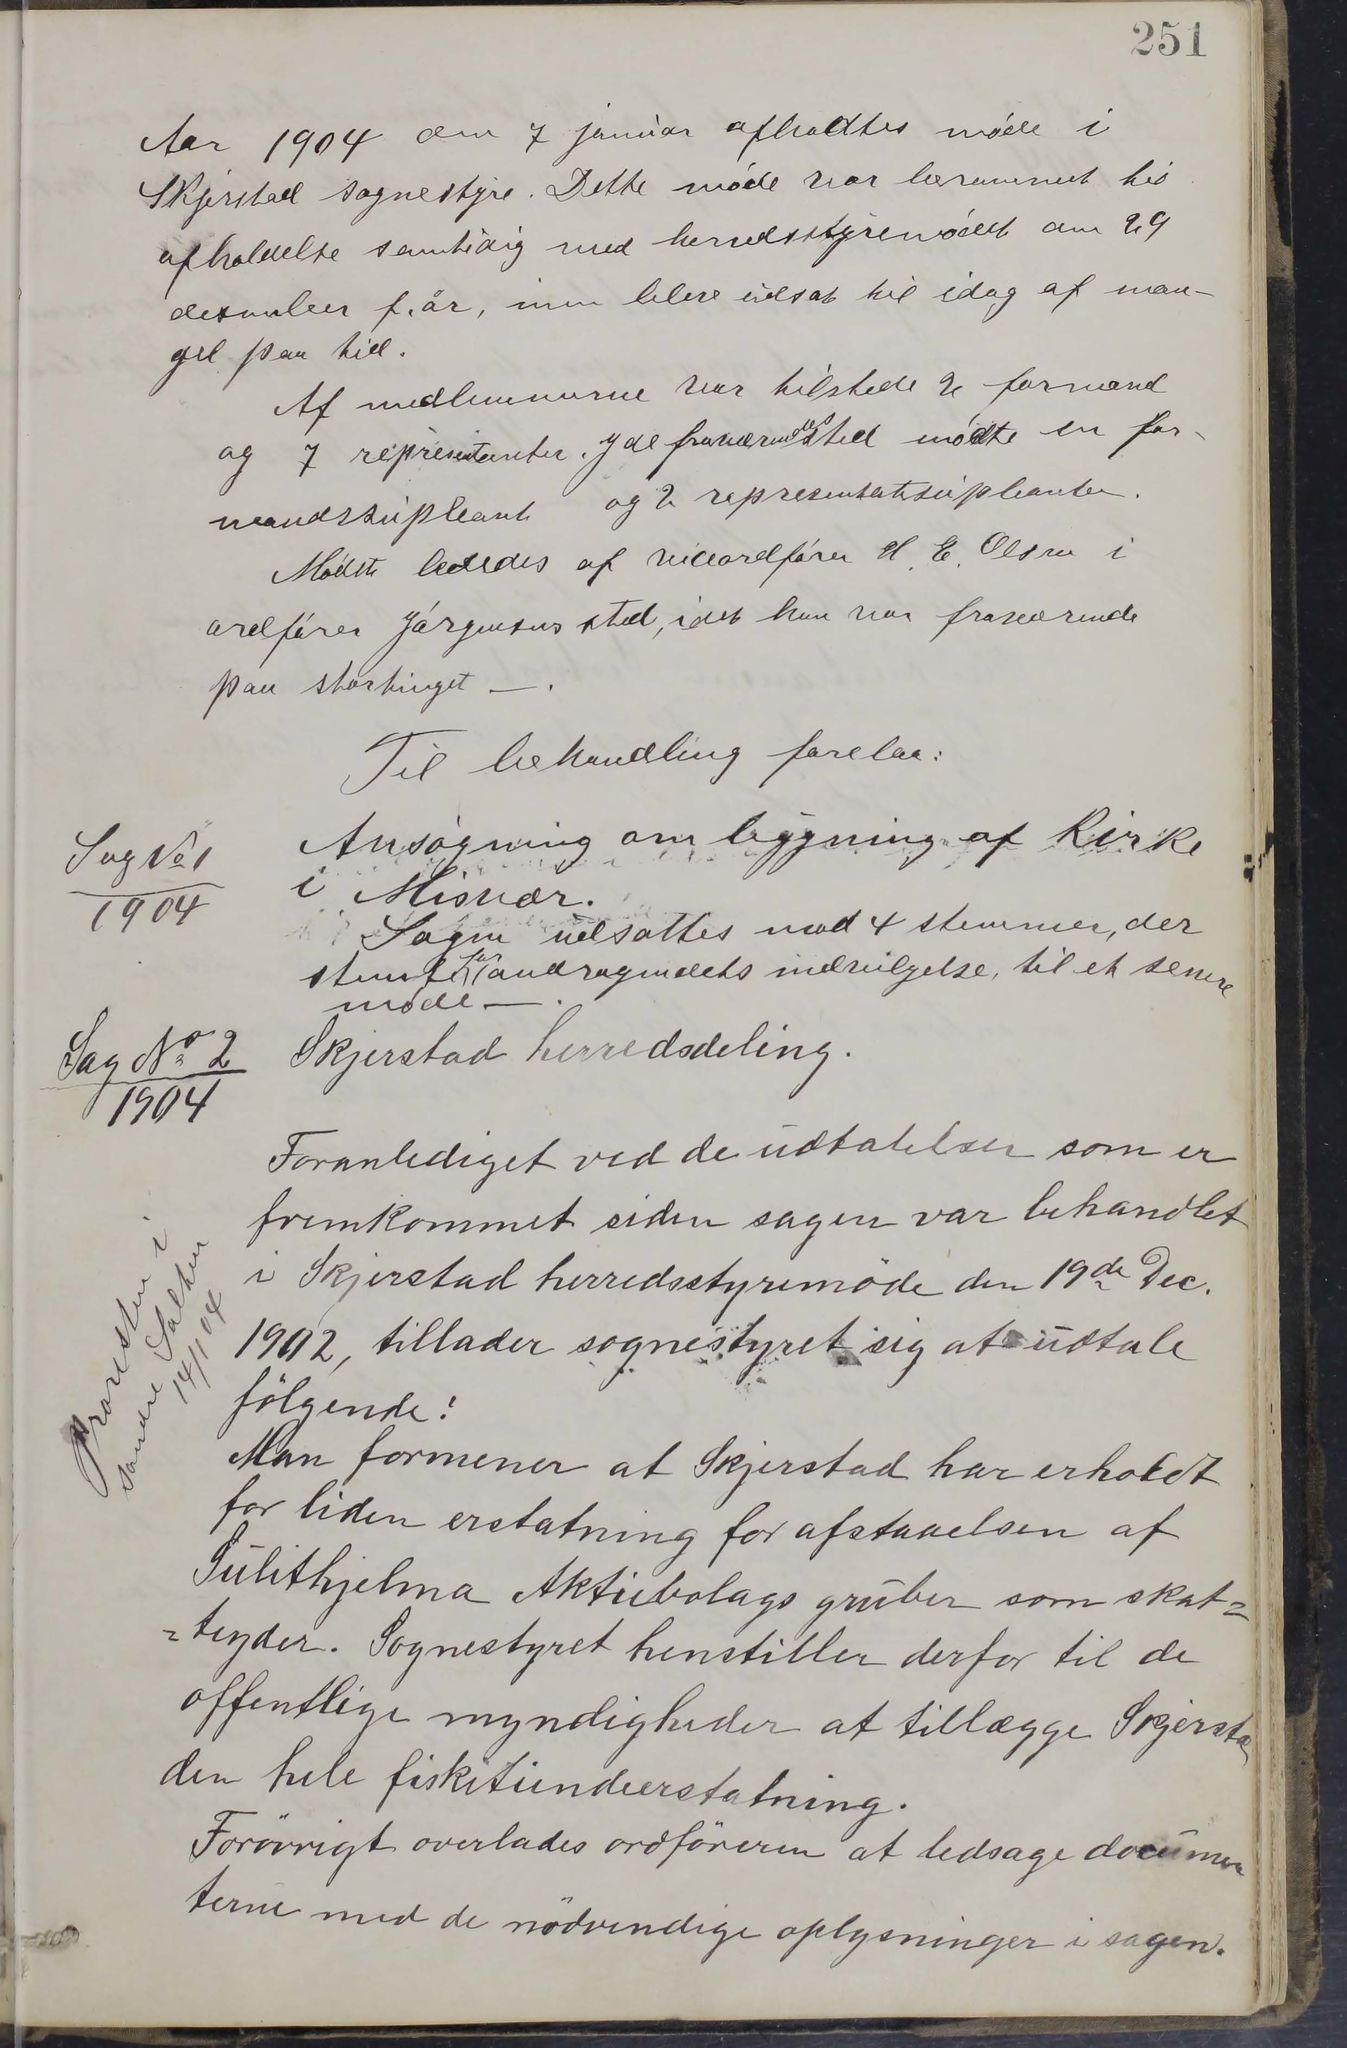 251
Aar 1904 den 7 januar afholdtes møde i
Skjerstad sognestyre. Dette møde var berammet til
afholdelse samtidig med herredsstyremødet den 29
desember f. år, men blev udsat til idag af man-
gel paa tid.
Af medlemmerne var tilstede 2 formænd
og 7 representanter. I de fraværendes sted mødte en for-
mandssupleant og 2 representantsupleanter.
Mødet lededes af viceordfører H. E. Olsen i
ordfører Jørgensens sted, idet han var fraværende
paa stortinget —.
Til behandling forelaa:
Sag No 1
1904
Ansøgning om bygning af Kirke
i Misvær.
Sagen udsattes mod 4 stemmer, der
stemte for andragendets indvilgelse, til et senere
møde —.
Sag No 2
1904
Skjerstad herredsdeling.
Foranlediget ved de udtalelser som er
fremkommet siden sagen var behandlet
i Skjerstad herredsstyremöde den 19de Dec.
1902, tillader sognestyret sig at udtale
fölgende:
Provsten i
søndre Salten
14/1 04
Man formener at Skjerstad har erholdt
for liden erstatning for afstaaelsen af
Sulithjelma Aktiebolags gruber som skat=
=teyder. Sognestyret henstiller derfor til de
offentlige myndigheder at tillægge Skjersta
den hele fisketiendeerstatning.
Forövrigt overlades ordföreren at ledsage documen
terne med de nödvendige oplysninger i sagen.